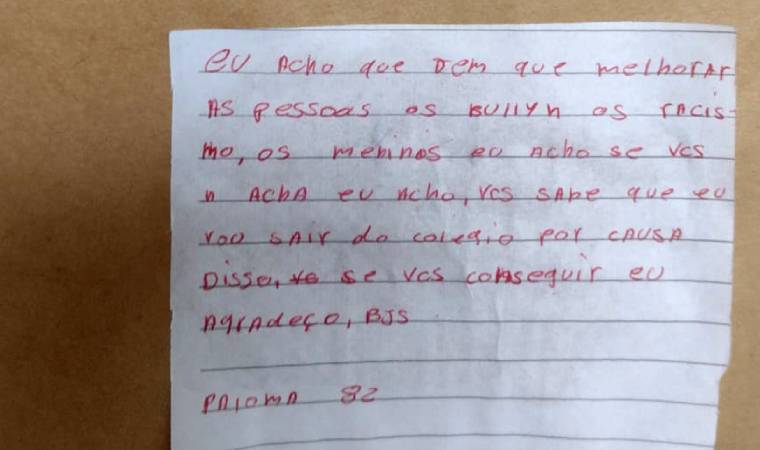 eu Acho que Dem que melhorAr
AS pessoas os BUllyn os rAcis-
mo, os meninos eu Acho se vcs
n AchA eu Acho, vcs SAbe que eu
vou SAir do colegio por cAUSA
Disso, se vcs conseguir eu
AgrAdeço, BJS
PAlomA 82